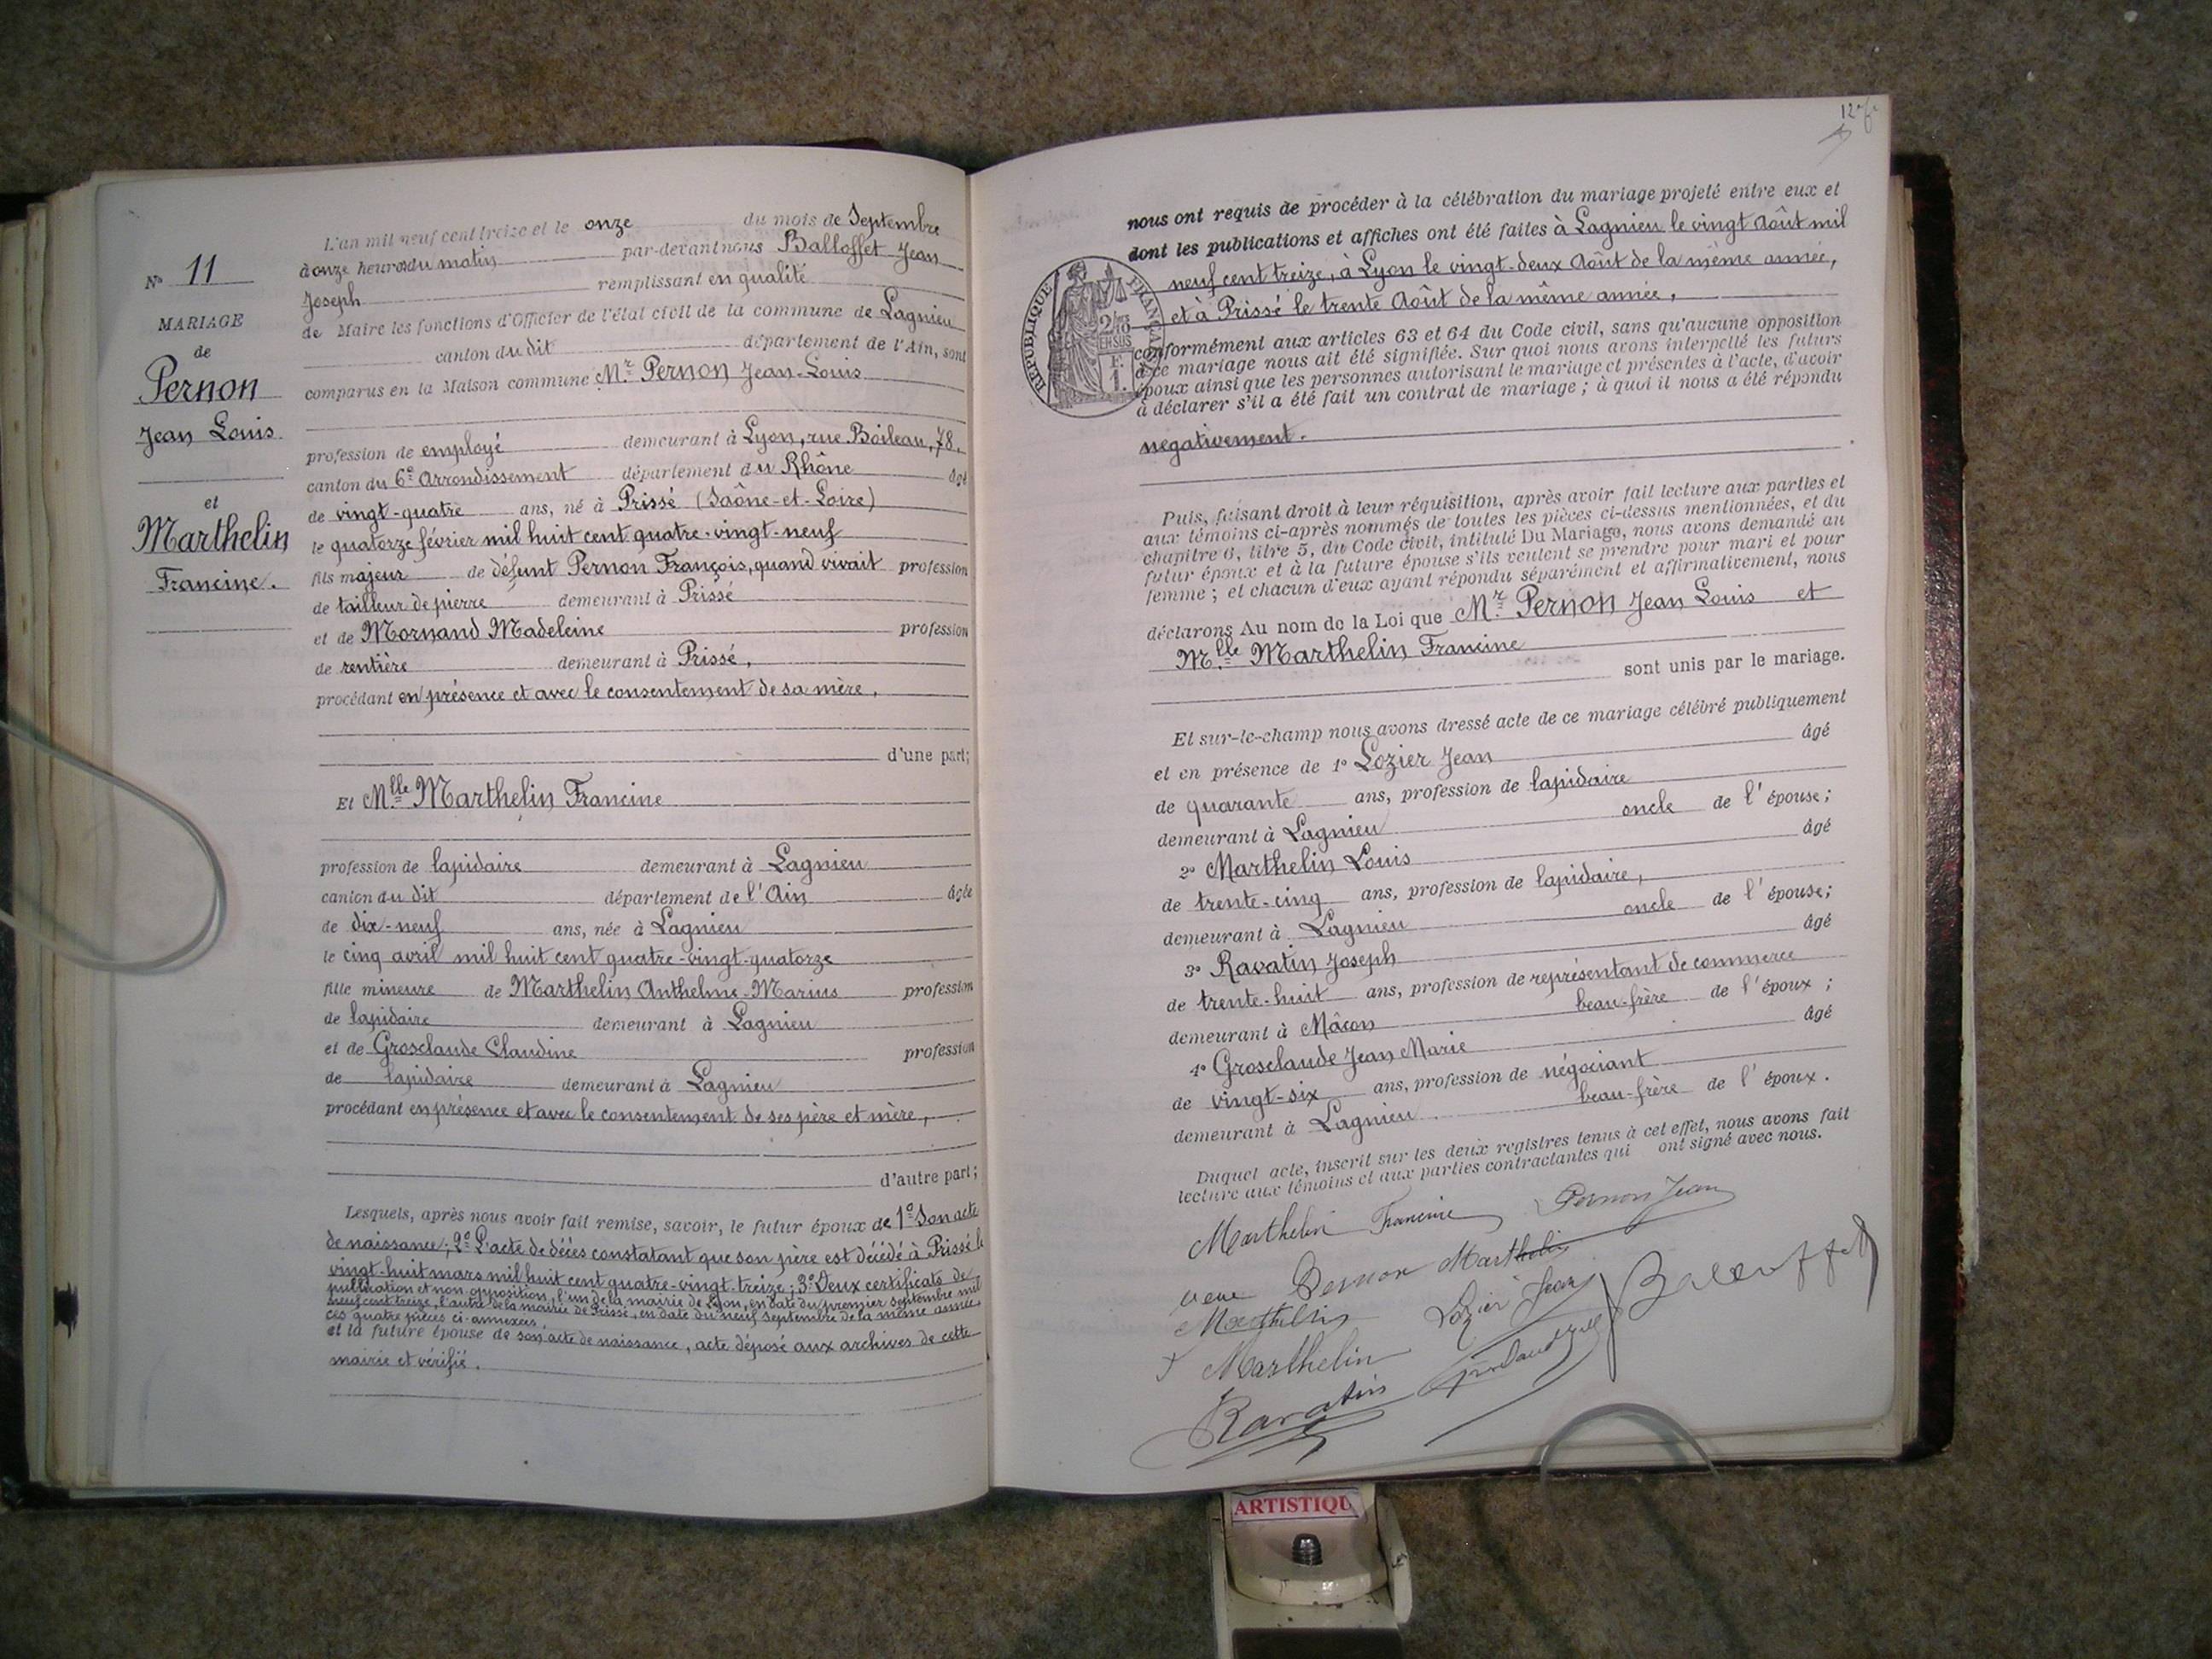 L'an mil neuf cent treize et le onze du mois de Septembre
à onze heures du matin par-devant nous Balloffet Jean
Joseph remplissant en qualité
de Maire les fonctions d'Officier de l'état civil de la commune de Lagnieu
canton du dit département de l'Ain, sont
comparus en la Maison commune Mr Pernon Jean-Louis
profession de employé demeurant à Lyon, rue Boileau, 78.
canton du 6e Arrondissement département du Rhône âgé
de vingt-quatre ans, né à Prissé (Saône-et-Loire)
le quatorze février mil huit cent quatre-vingt-neuf
fils majeur de défunt Pernon François, quand vivait profession
de tailleur de pierre demeurant à Prissé
et de Mornand Madeleine profession
de rentière demeurant à Prissé,
procédant en présence et avec le consentement de sa mère,
d'une part;
Et Mlle Marthelin Francine
profession de lapidaire demeurant à Lagnieu
canton du dit département de l'Ain âgée
de dix-neuf ans, née à Lagnieu
le cinq avril mil huit cent quatre-vingt-quatorze
fille mineure de Marthelin Anthelme-Marius profession
de lapidaire demeurant à Lagnieu
et de Grosclaude Claudine profession
de lapidaire demeurant à Lagnieu
procédant en présence et avec le consentement de ses père et mère,
d'autre part;
Lesquels, après nous avoir fait remise, savoir, le futur époux de 1° Son acte
de naissance; 2° L'acte de décès constatant que son père est décédé à Prissé le
vingt-huit mars mil huit cent quatre-vingt-treize; 3° Deux certificats de
publication et non opposition, l'un de la mairie de Lyon, en date du premier septembre mil
neuf cent treize, l'autre de la mairie de Prissé, en date du neuf septembre de la même année
ces quatre pièces ci-annexées,
et la future épouse de son acte de naissance, acte déposé aux archives de cette
mairie et vérifié.
N° 11
MARIAGE
de
Pernon
Jean Louis
et
Marthelin
Francine.
nous ont requis de procéder à la célébration du mariage projeté entre eux et
dont les publications et affiches ont été faites à Lagnieu le vingt Août mil
neuf cent treize, à Lyon le vingt-deux Août de la même année,
et à Prissé le trente Août de la même année,
RÉPUBLIQUE FRANÇAISE
2/10
EN SUS
F.
1.
conformément aux articles 63 et 64 du Code civil, sans qu'aucune opposition
à ce mariage nous ait été signifiée. Sur quoi nous avons interpellé les futurs
époux ainsi que les personnes autorisant le mariage et présentes à l'acte, d'avoir
à déclarer s'il a été fait un contrat de mariage; à quoi il nous a été répondu
négativement.
Puis, faisant droit à leur réquisition, après avoir fait lecture aux parties et
aux témoins ci-après nommés de toutes les pièces ci-dessus mentionnées, et du
chapitre 6, titre 5, du Code civil, intitulé Du Mariage, nous avons demandé au
futur époux et à la future épouse s'ils veulent se prendre pour mari et pour
femme; et chacun d'eux ayant répondu séparément et affirmativement, nous
déclarons Au nom de la Loi que Mr Pernon Jean Louis et
Mlle Marthelin Francine
sont unis par le mariage.
Et sur-le-champ nous avons dressé acte de ce mariage célébré publiquement
et en présence de 1° Lozier Jean âgé
de quarante ans, profession de lapidaire
demeurant à Lagnieu oncle de l'épouse;
2° Marthelin Louis âgé
de trente-cinq ans, profession de lapidaire,
demeurant à Lagnieu oncle de l'épouse;
3° Ravatin Joseph âgé
de trente-huit ans, profession de représentant de commerce
demeurant à Mâcon beau-frère de l'époux;
4° Grosclaude Jean Marie âgé
de vingt-six ans, profession de négociant
demeurant à Lagnieu beau-frère de l'époux.
Duquel acte, inscrit sur les deux registres tenus à cet effet, nous avons fait
lecture aux témoins et aux parties contractantes qui ont signé avec nous.
Marthelin Francine Pernon Jean
veuve Pernon Marthelin
Marthelin Lozier Jean Balloffet
Marthelin
Ravatin
ARTISTIQU